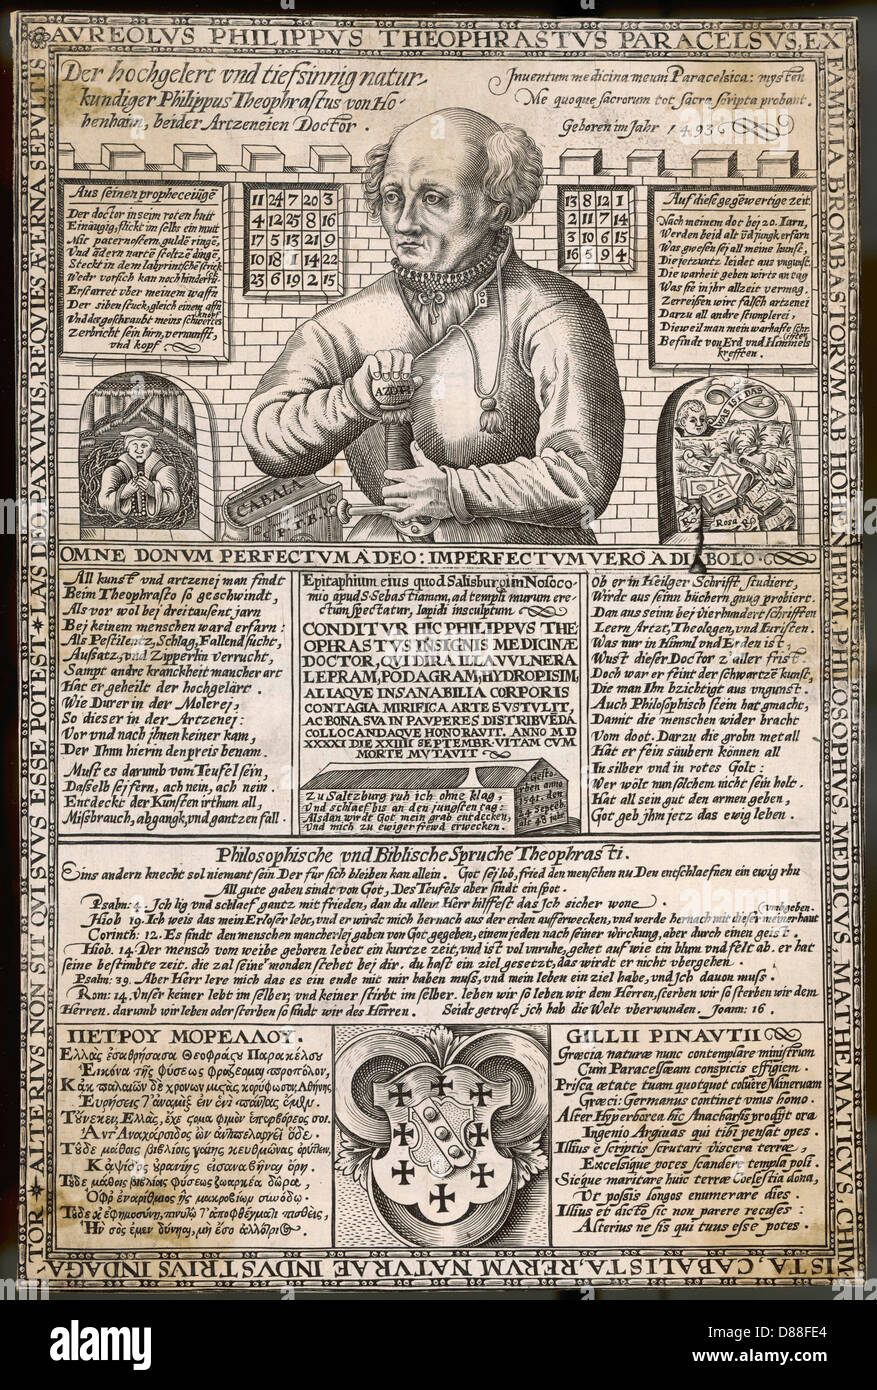 AVREOLVS PHILIPPVS THEOPHRASTVS PARACELSVS, EX
FAMILIA BROMBASTORVM AB HOHENHEIM PHILOSOPHVS, MEDICVS, MATHEMATICVS, CHIM
ISTA, CABALISTA, RERVM NATVRAE INDVSTRIVS INDAGA
TOR ALTERIVS NON SIT QVI SVVS ESSE POTEST LAVS DEO, PAX VIVIS, REQVIES ÆTERNA SEPVLTIS
Der hochgelert vnd tiefsinnig natur
kundiger Philippus Theophrastus von Ho-
henhaim, beider Artzeneien Doctor.
Inuentum medicina meum Paracelsica: mysten
Me quoque sacrorum tot sacra scripta probant.
Geboren im Jahr 1493
Aus seinen propheceiungē
Der doctor in seim roten hutt
Einäugig, stickt im selbs ein mutt
Mit paternostern, guldē ringē,
Vnd ādern nartē seeltzē dingē,
Steckt in dem labyrinsche strick
Wedr vorsich kan noch hindersich
Erstarret vber meinem waffn
Der siben stuck, gleich einem affn
Vnd des geschraubt meins schwertes knopf
Zerbricht sein hirn, vernunfft,
vnd kopf
11 24 7 20 3
4 12 25 8 16
17 5 13 21 9
10 18 1 14 22
23 6 19 2 15
13 8 12 1
2 11 7 14
3 10 6 15
16 5 9 4
Auf diese gegēwertige zeit
Nach meinem doc bej 20. Iarn,
Werden beid alt vñd jungk erfarn
Was gwesen sej all meine kunst,
Die jetzuntz leidet aus vngunst.
Die warheit geben wirts an tag
Was sie in jhr allzeit vermag.
Zerreissen wirt falsch artzenei
Darzu all andre stumplerei,
Die weil man mein warhaffte schr
ifften
Befindt von Erd vnd Himmels
krefften.
AZOTH
CABALA
WAS IST DAS
Rosa
OMNE DONVM PERFECTVM A DEO: IMPERFECTVM VERO A DIABOLO
All kunst vnd artzenej man findt
Beim Theophrasto so geschwindt,
Als vor wol bej dreitausent jarn
Bej keinem menschen ward erfarn:
Als Pestilentz, Schlag, Fallend sucht,
Aussatz, vnd Zipperlin verrucht,
Sampt andre kranckheit mancher art
Hat er geheilt der hochgelart.
Wie Durer in der Molerej,
So dieser in der Artzenej:
Vor vnd nach jhnen keiner kam,
Der Ihnn hierin den preis benam.
Must es darumb vom Teufel sein,
Dasselb sej fern, ach nein, ach nein.
Entdeckt der Kunsten irthum all,
Missbrauch, abgangk, vnd gantzen fall.
Epitaphium eius quod Salisburgi in Nosoco-
mio apud S. Sebastianum, ad templi murum ere-
ctum spectatur, lapidi insculptum
CONDITVR HIC PHILIPPVS THE
OPHRASTVS INSIGNIS MEDICINÆ
DOCTOR, QVI DIRA ILLA VVLNERA
LEPRAM, PODAGRAM, HYDROPISIM,
ALIAQVE INSANABILIA CORPORIS
CONTAGIA MIRIFICA ARTE SVSTVLIT,
AC BONA SVA IN PAVPERES DISTRIBVĒDA
COLLOCANDAQVE HONORAVIT. ANNO M D
XXXXI DIE XXIIII SEPTEMBR. VITAM CVM
MORTE MVTAVIT
Zu Saltzburg ruh ich ohne klag,
Vnd schlaef bis an den jungsten tag:
Alsdan wirdt Got mein grab entdecken,
Vnd mich zu ewiger frewd erwecken.
Gesto-
rben anno
1541. den
24 Septēb.
alt 48 jahr
Ob er in Heilger Schrifft studiert,
Wirdt aus seinn büchern gnug probiert.
Dan aus seinn bej vierhundert schrifften
Leern Artzt, Theologen, vnd Iuristen.
Was nur in Himml vnd Erden ist,
Wust dieser Doctor z'aller frist.
Doch war er feint der schwartzē kunst,
Die man Ihn bzichtigt aus vngunst.
Auch Philosophisch stein hat gmacht,
Damit die menschen wider bracht
Vom doot. Darzu die grobn metall
Hat er fein säubern können all
In silber vnd in rotes Golt:
Wer wolt nun solchem nicht sein holt.
Hat all sein gut den armen geben,
Got geb jhm jetz das ewig leben.
Philosophische vnd Biblische Spruche Theophrasti.
Eins andern knecht sol niemant sein Der für sich bleiben kan allein. Got sej lob, fried den menschen nu Den entschlaefnen ein ewig rhu
All gute gaben sindt von Got, Des Teufels aber sindt ein spot.
Psalm: 4. Ich lig vnd schlaef gantz mit frieden, dan du allein Herr hilffest das Ich sicher wone.
Hiob 19. Ich weis das mein Erloser lebt, vnd er wirdt mich hernach aus der erden aufferwecken, vnd werde hernach mit dieser meiner haut vmbgeben.
Corinth: 12. Es sindt den menschen mancherlej gaben von Got gegeben, einem jeden nach seiner wirckung, aber durch einen geist.
Hiob. 14. Der mensch vom weibe geboren lebet ein kurtze zeit, vnd ist vol vnruhe, gehet auf wie ein blum vnd felt ab. er hat
seine bestimbte zeit. die zal seine monden stehet bej dir. du hast ein ziel gesetzt, das wirdt er nicht vbergehen.
Psalm: 39. Aber Herr lere mich das es ein ende mit mir haben muss, vnd mein leben ein ziel habe, vnd Ich dauon muss.
Rom: 14. Vnser keiner lebt im selber, vnd keiner stirbt im selber. leben wir so leben wir dem Herren, sterben wir so sterben wir dem
Herren. darumb wir leben oder sterben so sindt wir des Herren. Seidt getrost ich hab die Welt vberwunden. Joann: 16.
ΠΕΤΡΟΥ ΜΟΡΕΛΛΟΥ.
GILLII PINAVTII
Græcia naturæ nunc contemplare ministrum
Cum Paracelsæam conspicis effigiem.
Prisca ætate tuam quotquot coluere Mineruam
Græci: Germanus continet vnus homo.
Alter Hyperborea hic Anacharsis prodijt ora
Ingenio Argiuas qui tibi pensat opes.
Illius è scriptis scrutari viscera terræ,
Excelsique potes scandere templa poli.
Sicque maritare huic terræ Coelestia dona,
Vt possis longos enumerare dies.
Illius et dictis sic non parere recuses:
Alterius ne sis qui tuus esse potes.
alamy stock photo
D88FE4
www.alamy.com